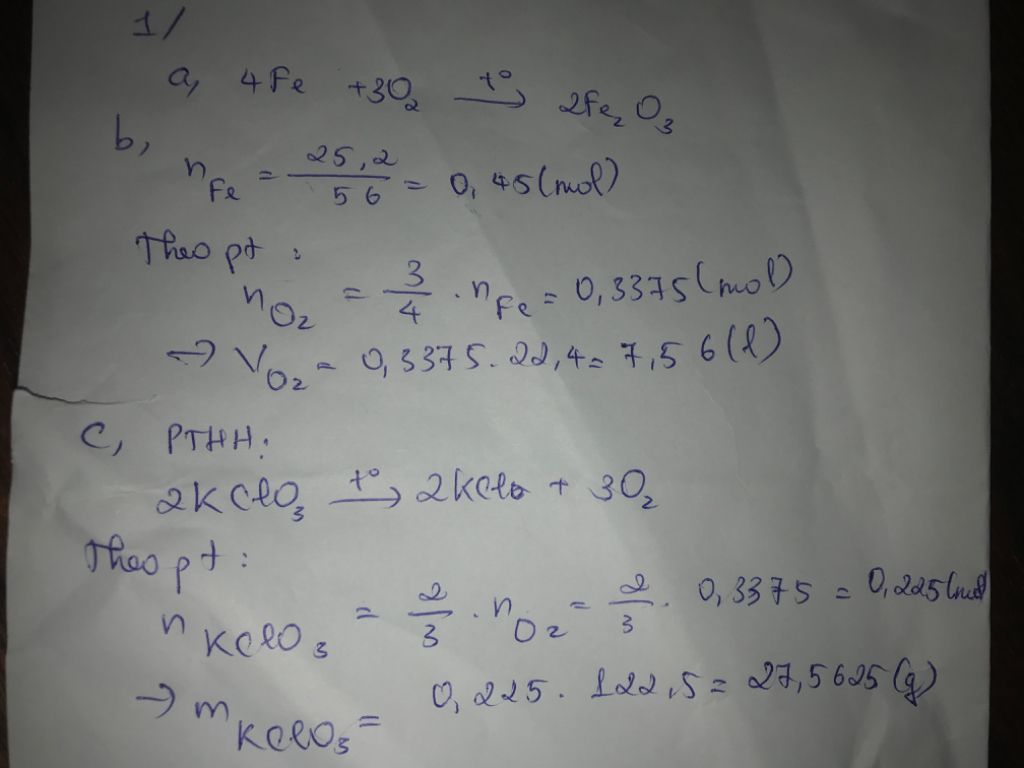 1/
a, 4Fe +3O₂ —t°→ 2Fe₂O₃
b,
n_Fe = 25,2/56 = 0,45(mol)
Theo pt :
n_O₂ = 3/4 . n_Fe = 0,3375(mol)
→ V_O₂ = 0,3375.22,4= 7,56(l)
C, PTHH:
2KClO₃ —t°→ 2KCl + 3O₂
Theo pt :
n_KClO₃ = 2/3 . n_O₂ = 2/3 . 0,3375 = 0,225(mol)
→ m_KClO₃ = 0,225 . 122,5= 27,5625(g)